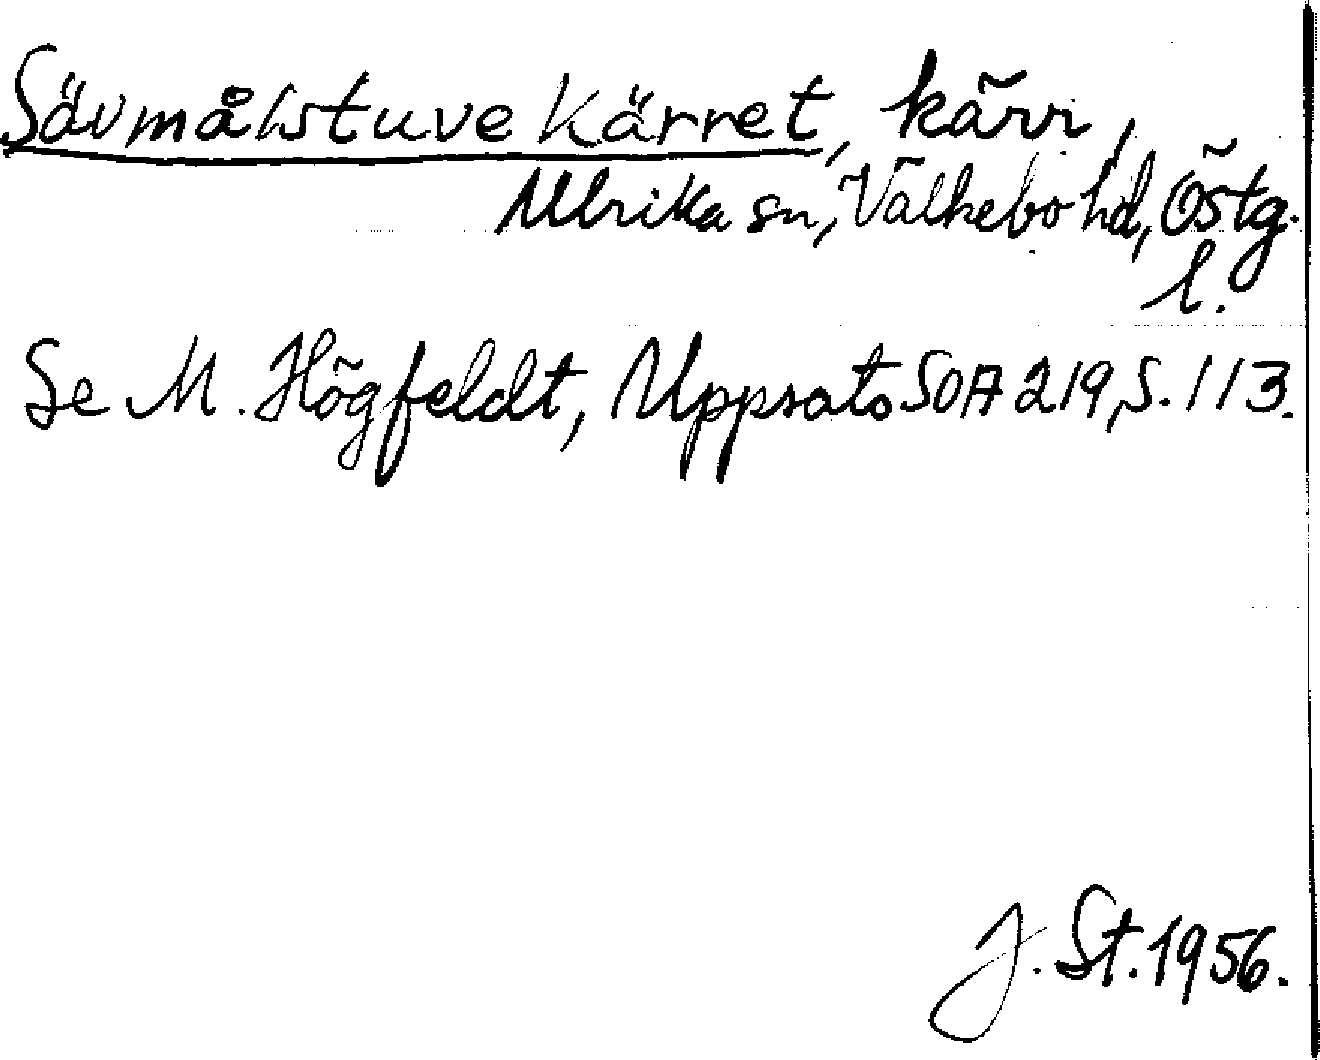 Sävmålstuve Kärret, kärr,
Ulrika sn, Valkebo hd, Östg.
l.
Se M. Högfeldt, Uppsats SOA 219, S. 113.
J. St. 1956.